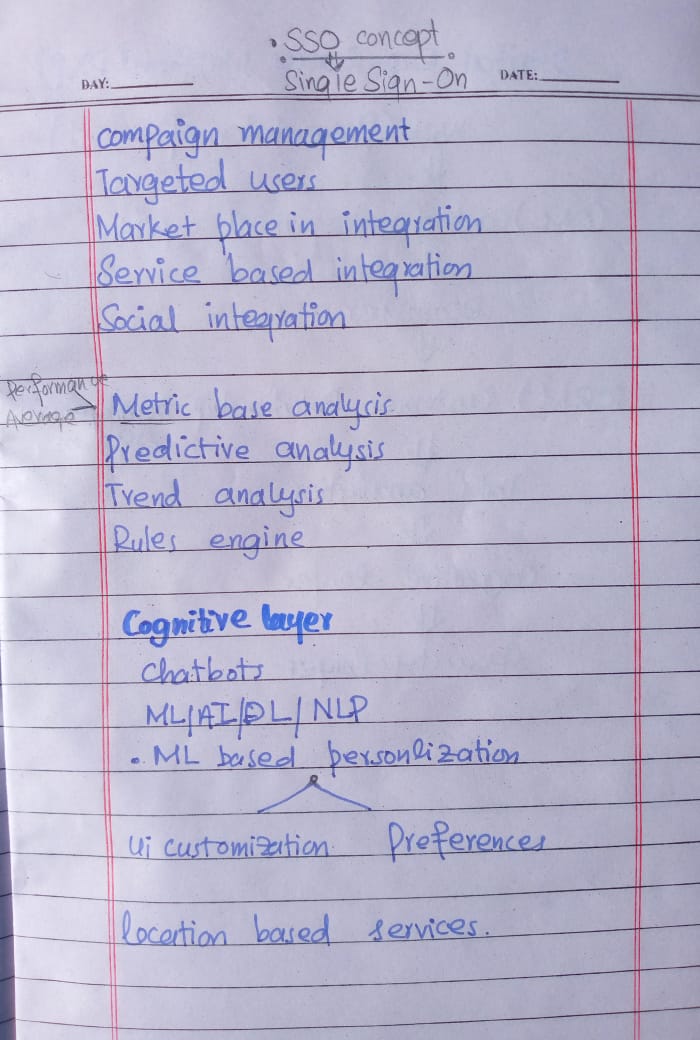 • SSO concept
⇓
DAY:
Single Sign-On
DATE:
compaign management
Targeted users
Market place in integration
Service based integration
Social integration
Performance
Average
Metric base analysis
Predictive analysis
Trend analysis
Rules engine
Cognitive layer
Chatbots
ML/AI/DL/NLP
• ML based personlization
Ui customization Preferences
location based services.